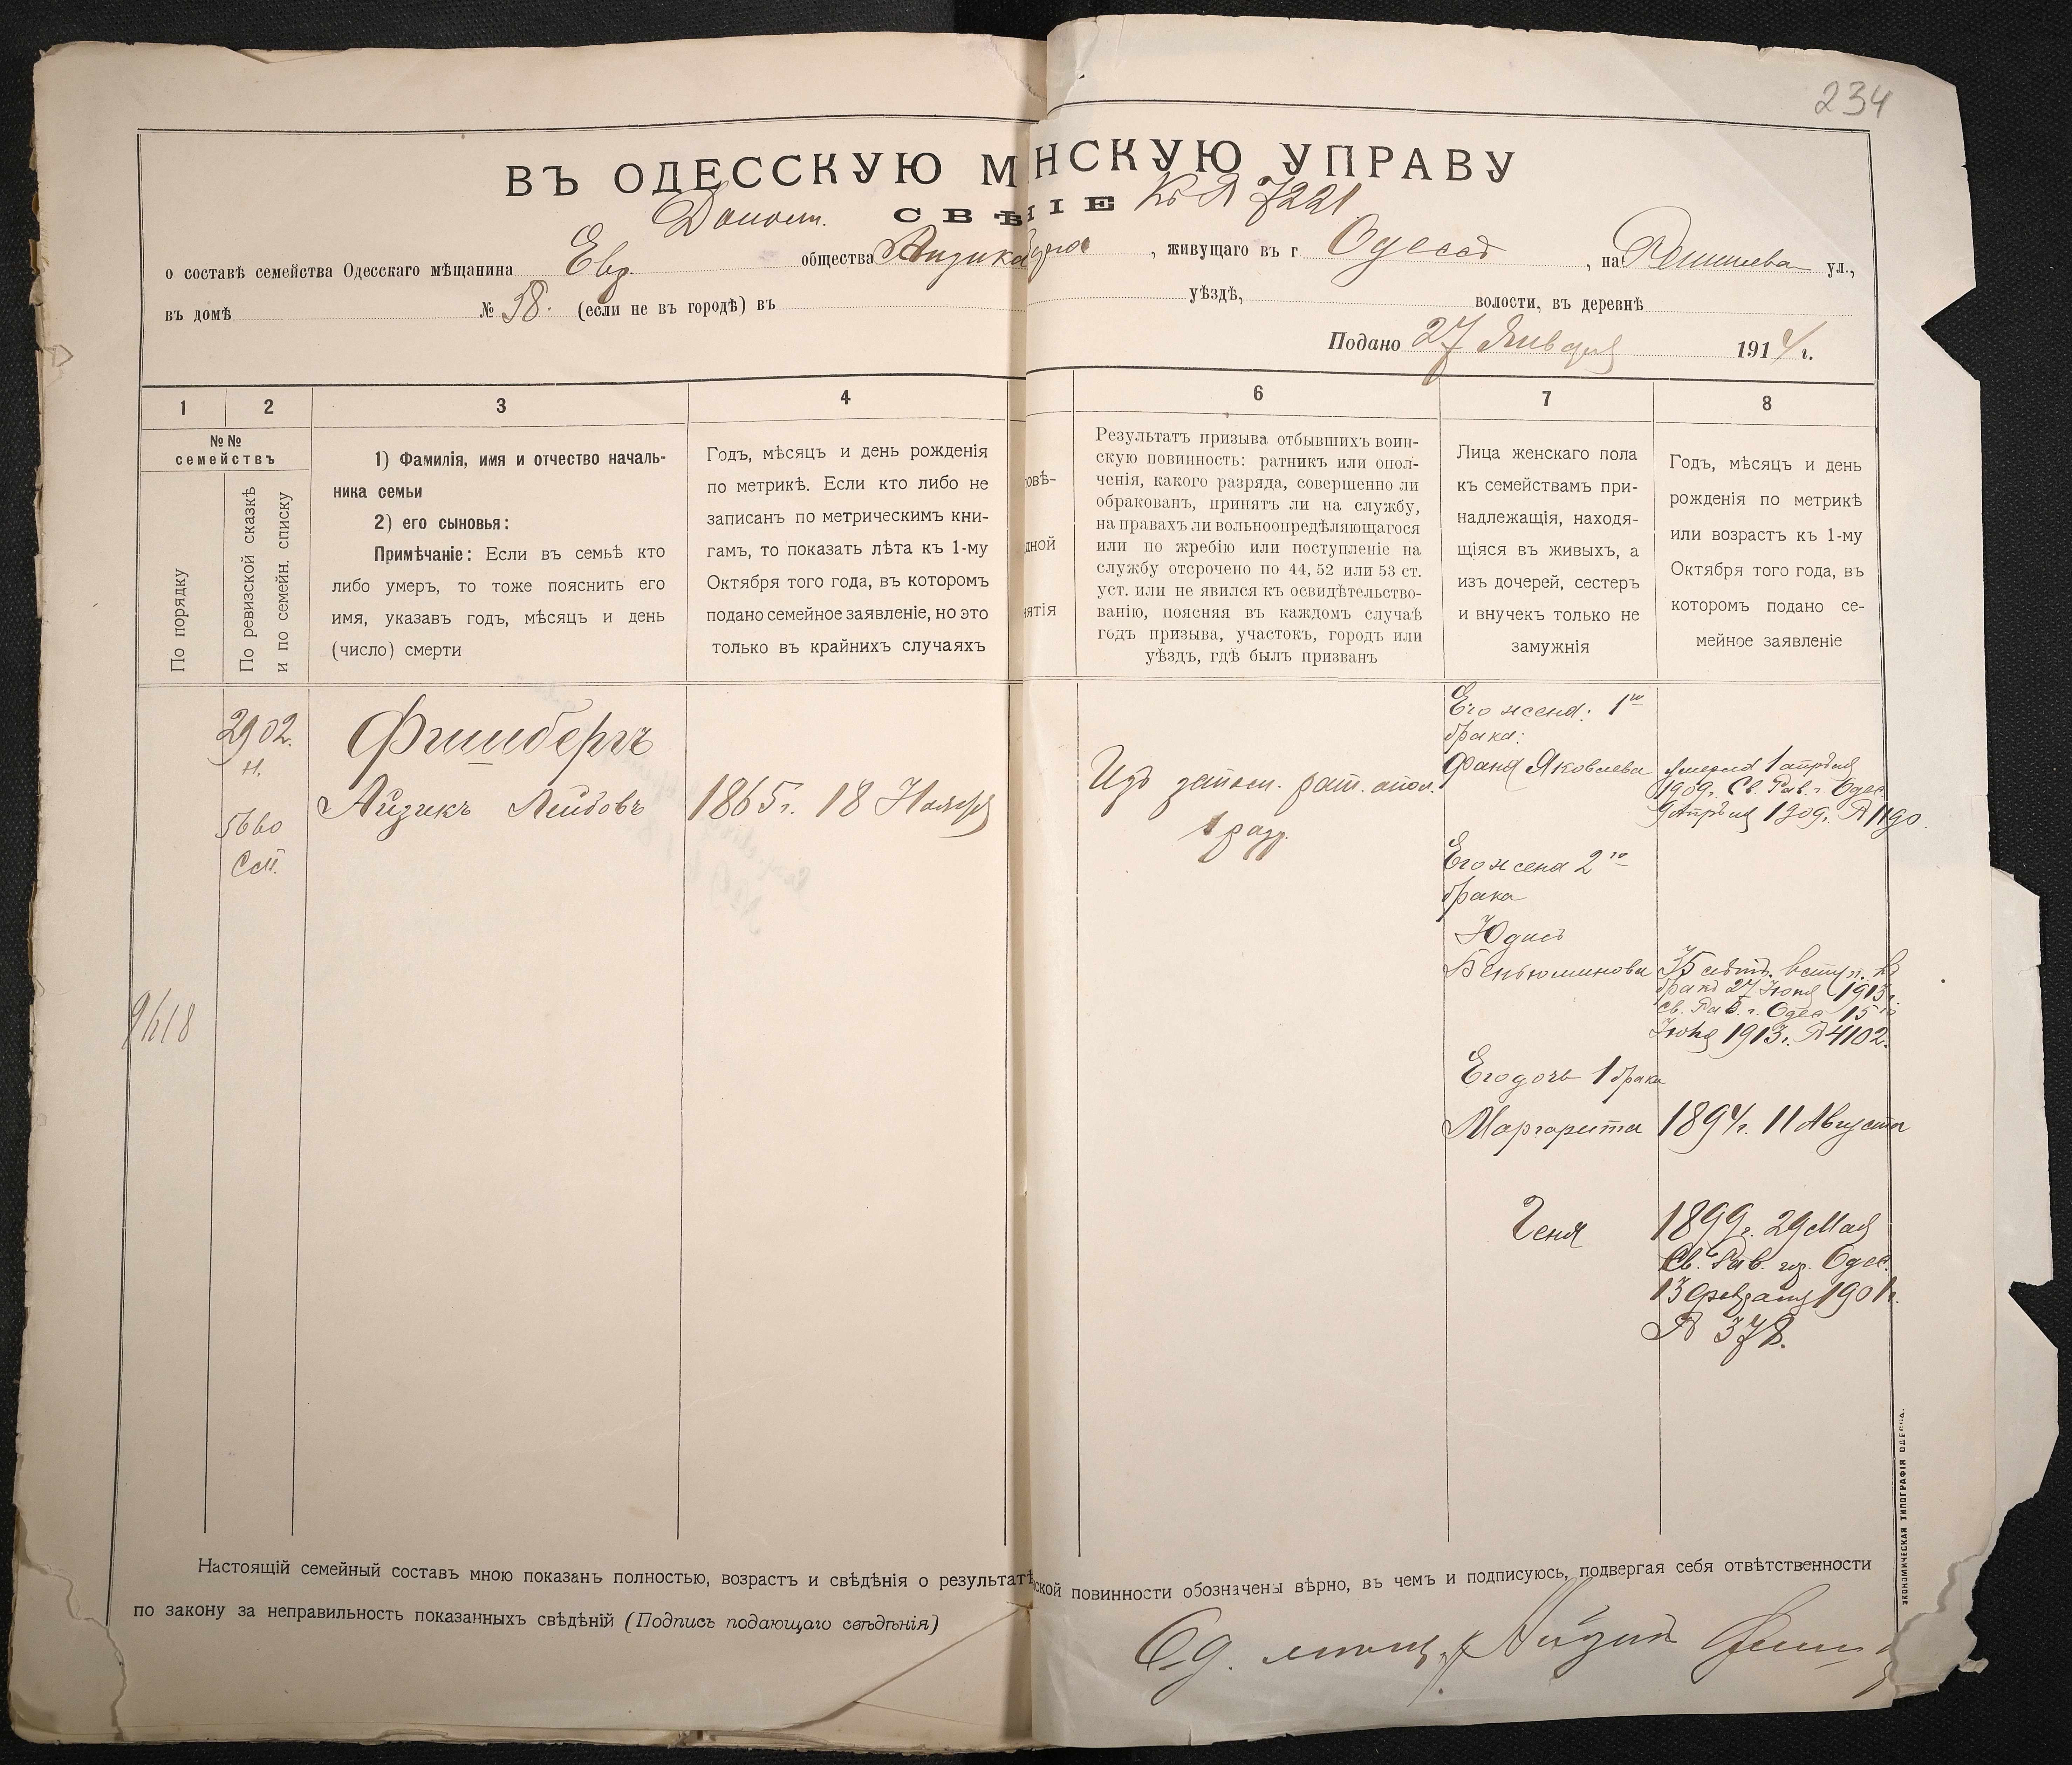 234
ВЪ ОДЕССКУЮ М НСКУЮ УПРАВУ
Къ № 7221
о составѣ семейства Одесскаго мѣщанина Евр. общества , живущаго въ г Одессѣ , на Ришильев ул.,
въ домѣ № 58. (если не въ городѣ) въ уѣздѣ, волости, въ деревнѣ
Подано 27 Января 1914 г.
1 2 3 4 6 7 8
№№ семействъ
По порядку
По ревизской сказкѣ и по семейн. списку
1) Фамилія, имя и отчество началь-
ника семьи
2) его сыновья:
Примѣчаніе: Если въ семьѣ кто
либо умеръ, то тоже пояснить его
имя, указавъ годъ, мѣсяцъ и день
(число) смерти
Годъ, мѣсяцъ и день рожденія
по метрикѣ. Если кто либо не
записанъ по метрическимъ кни-
гамъ, то показать лѣта къ 1-му
Октября того года, въ которомъ
подано семейное заявленіе, но это
только въ крайнихъ случаяхъ
овѣ-
дной
нятія
Результатъ призыва отбывшихъ воин-
скую повинность: ратникъ или опол-
ченія, какого разряда, совершенно ли
обракованъ, принятъ ли на службу,
на правахъ ли вольноопредѣляющагося
или по жребію или поступленіе на
службу отсрочено по 44, 52 или 53 ст.
уст. или не явился къ освидѣтельство-
ванію, поясняя въ каждомъ случаѣ
годъ призыва, участокъ, городъ или
уѣздъ, гдѣ былъ призванъ
Лица женскаго пола
къ семействамъ при-
надлежащія, находя-
щіяся въ живыхъ, а
изъ дочерей, сестеръ
и внучекъ только не
замужнія
Годъ, мѣсяцъ и день
рожденія по метрикѣ
или возрастъ къ 1-му
Октября того года, въ
которомъ подано се-
мейное заявленіе
2902.
н.
Фишбергъ
Айзикъ Лейбовъ
1865 г. 18 Ноября
Изъ запасн. рат. опол.
1 разр.
Его жена: 1го
брака:
Фаня Яковлева
Умерла 1 апрѣля
1909 г. Св. Рав. г. Одес.
9 Апрѣля 1909 г. № 1190.
Его жена 2го
брака
Юдись
Беньюминова
35 лѣтъ. вступ. въ
бракъ 27 Іюня 1913 г.
Св. Рав. г. Одес 15го
Іюня 1913 г. № 4102.
9618
Его дочь 1 брака
Маргарита 1894 г. 11 Августа
Геня 1899 г. 29 Мая
Св. Рав. гор. Одес.
13 Февраля 1901 г.
№ 378.
Настоящій семейный составъ мною показанъ полностью, возрастъ и свѣдѣнія о результатѣ ской повинности обозначены вѣрно, въ чемъ и подписуюсь, подвергая себя отвѣтственности
по закону за неправильность показанныхъ свѣдѣній (Подпись подающаго свѣдѣнія)
Од. мѣщ. Айзик Фиш
ЭКОНОМИЧЕСКАЯ ТИПОГРАФІЯ ОДЕССА.